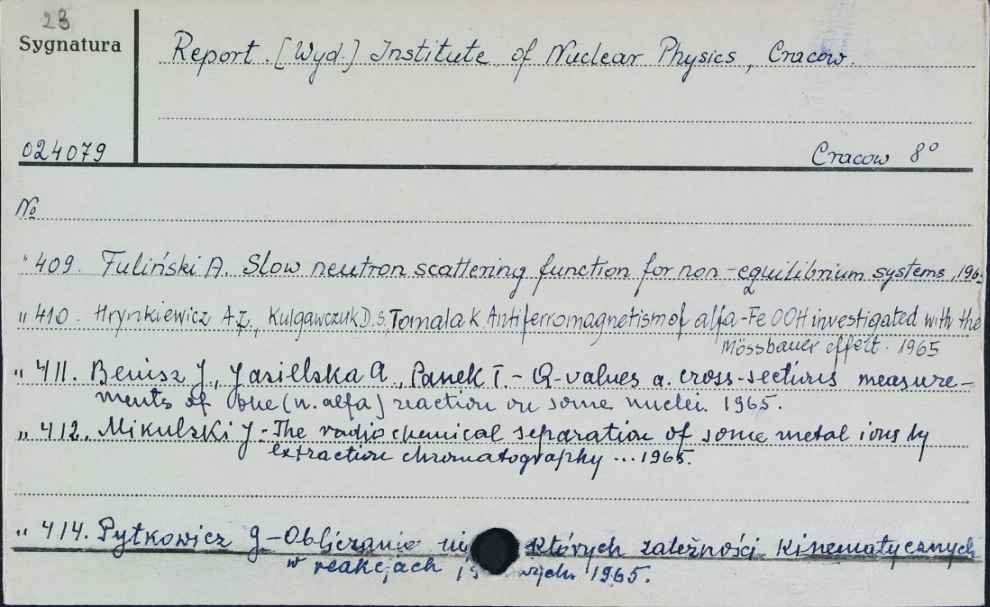 23
Sygnatura
Report. [Wyd.] Institute of Nuclear Physics, Cracow.
024079
Cracow 8°
№
" 409. Fuliński A. Slow neutron scattering function for non-equilibrium systems, 196
" 410. Hrynkiewicz A Z., Kulgawczuk D.S, Tomala K Antiferromagnetism of alfa-FeOOH investigated with the
Mössbauer effect. 1965
" 411. Benisz J., Jasielska A., Panek T. - Q-values a. cross-sections measure-
ments of the (n. alfa) reaction on some nuclei. 1965.
" 412. Mikulski J - The radiochemical separation of some metal ions by
extraction chromatography ... 1965.
" 414. Pytkowicz J - Obliczanie nie których zależności kinematycznych
w reakcjach 1965.